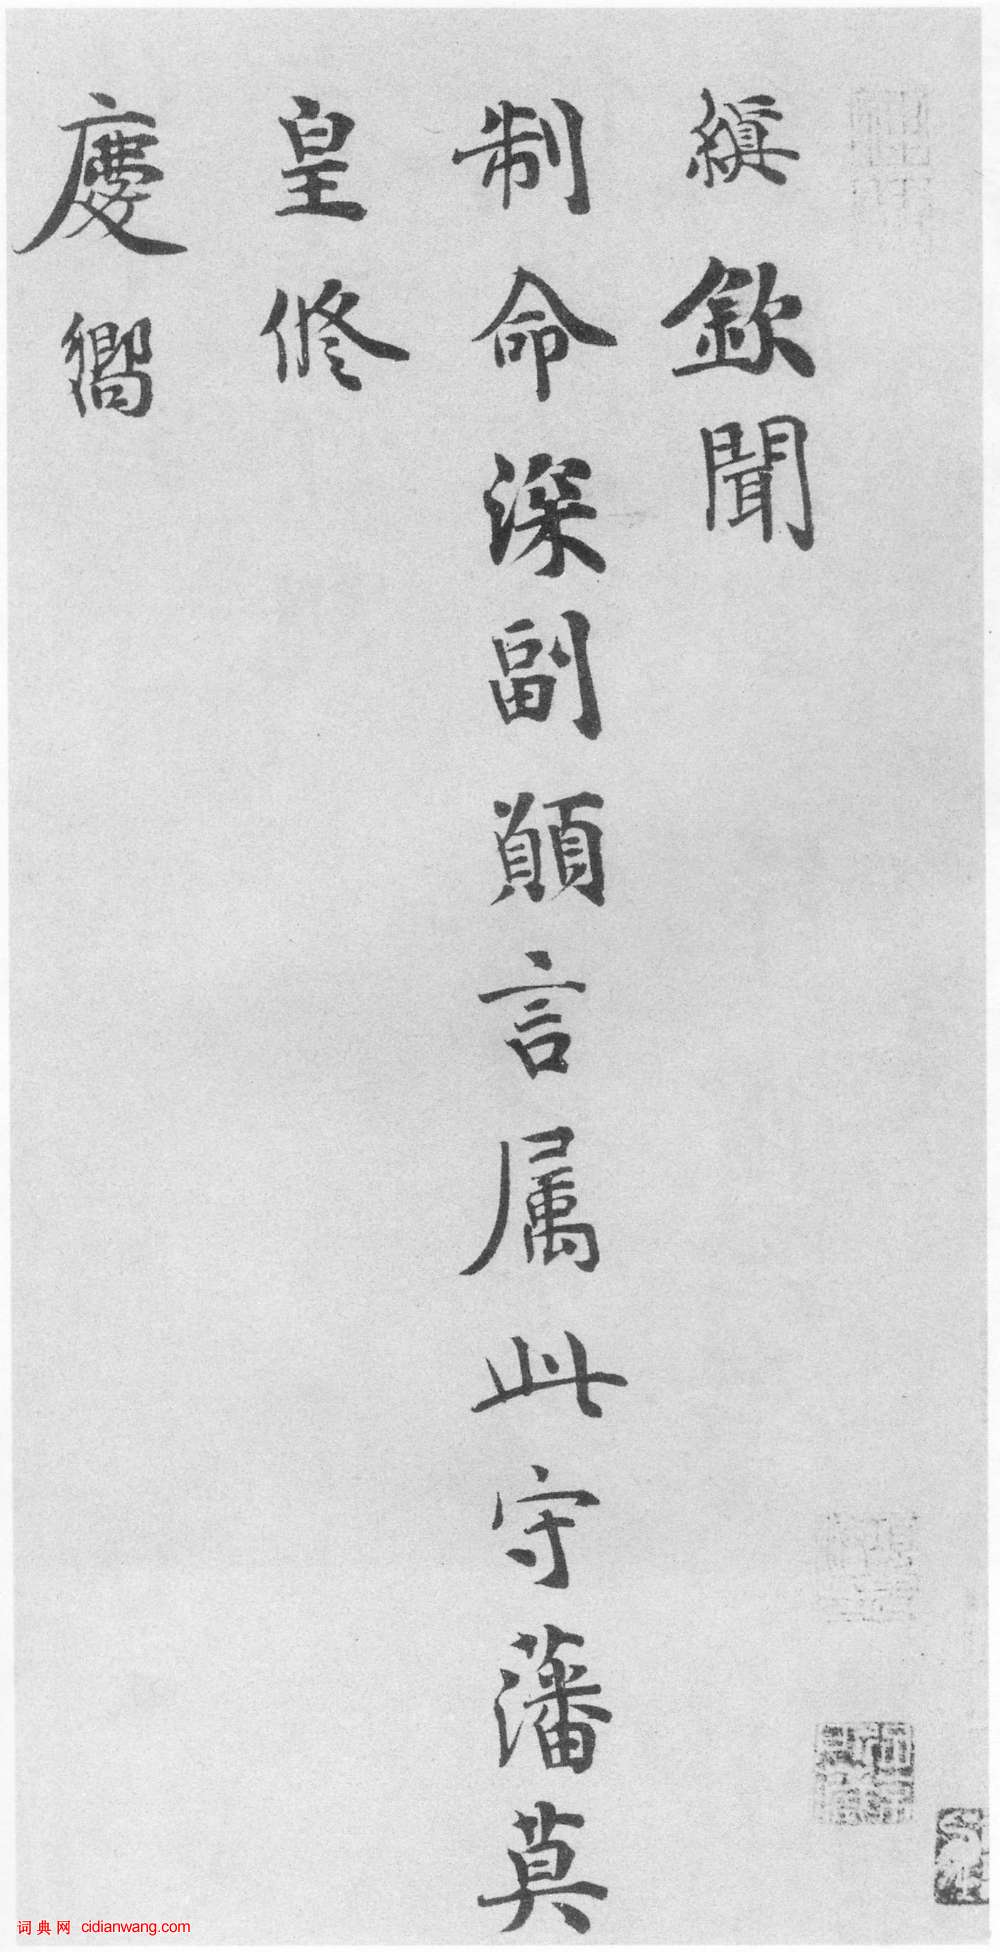 縝欽聞
制命深副願言属此守藩莫
皇修
慶嚮
词典网 cidianwang.com